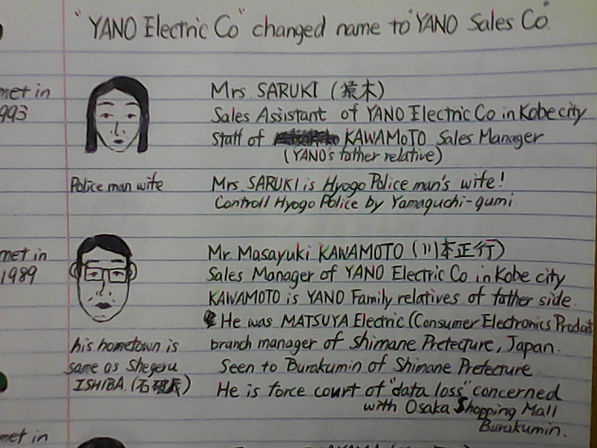 "YANO Electric Co" changed name to "YANO Sales Co"
met in
993
Mrs SARUKI (猿木)
Sales Assistant of YANO Electric Co in Kobe city
Staff of KAWAMOTO Sales Manager
(YANO's father relative)
Police man wife
Mrs. SARUKI is Hyogo Police man's wife!
Controll Hyogo Police by Yamaguchi-gumi
met in
1989
Mr. Masayuki KAWAMOTO (川本正行)
Sales Manager of YANO Electric Co in Kobe city
KAWAMOTO is YANO Family relatives of father side.
He was MATSUYA Electric (Consumer Electronics Product
branch manager of Shimane Pretecqure, Japan.
his hometown is
same as Shegeru
ISHIBA (石破茂)
Seen to Burakumin of Shimane Pretecture
He is force court of "data loss" concerned
with Osaka Shopping Mall
Burakumin.
met in